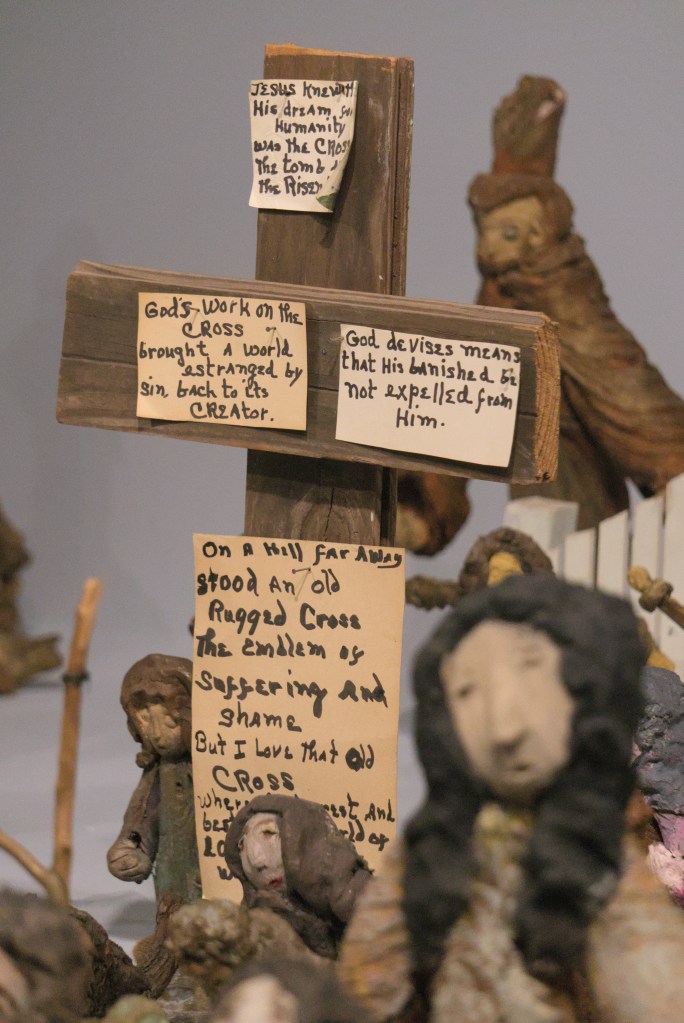 JESUS KNEW
His dream
Humanity
was the CROSS
the tomb
the Risen
God's WORK on the
CROSS
brought A WORLD
estranged by
sin back to its
CREATOR.
God devises means
that His banished be
not expelled from
Him.
ON A Hill FAR AWAY
stood An old
Rugged Cross
The emblem of
suffering And
shame
But I Love that old
CROSS
And
of